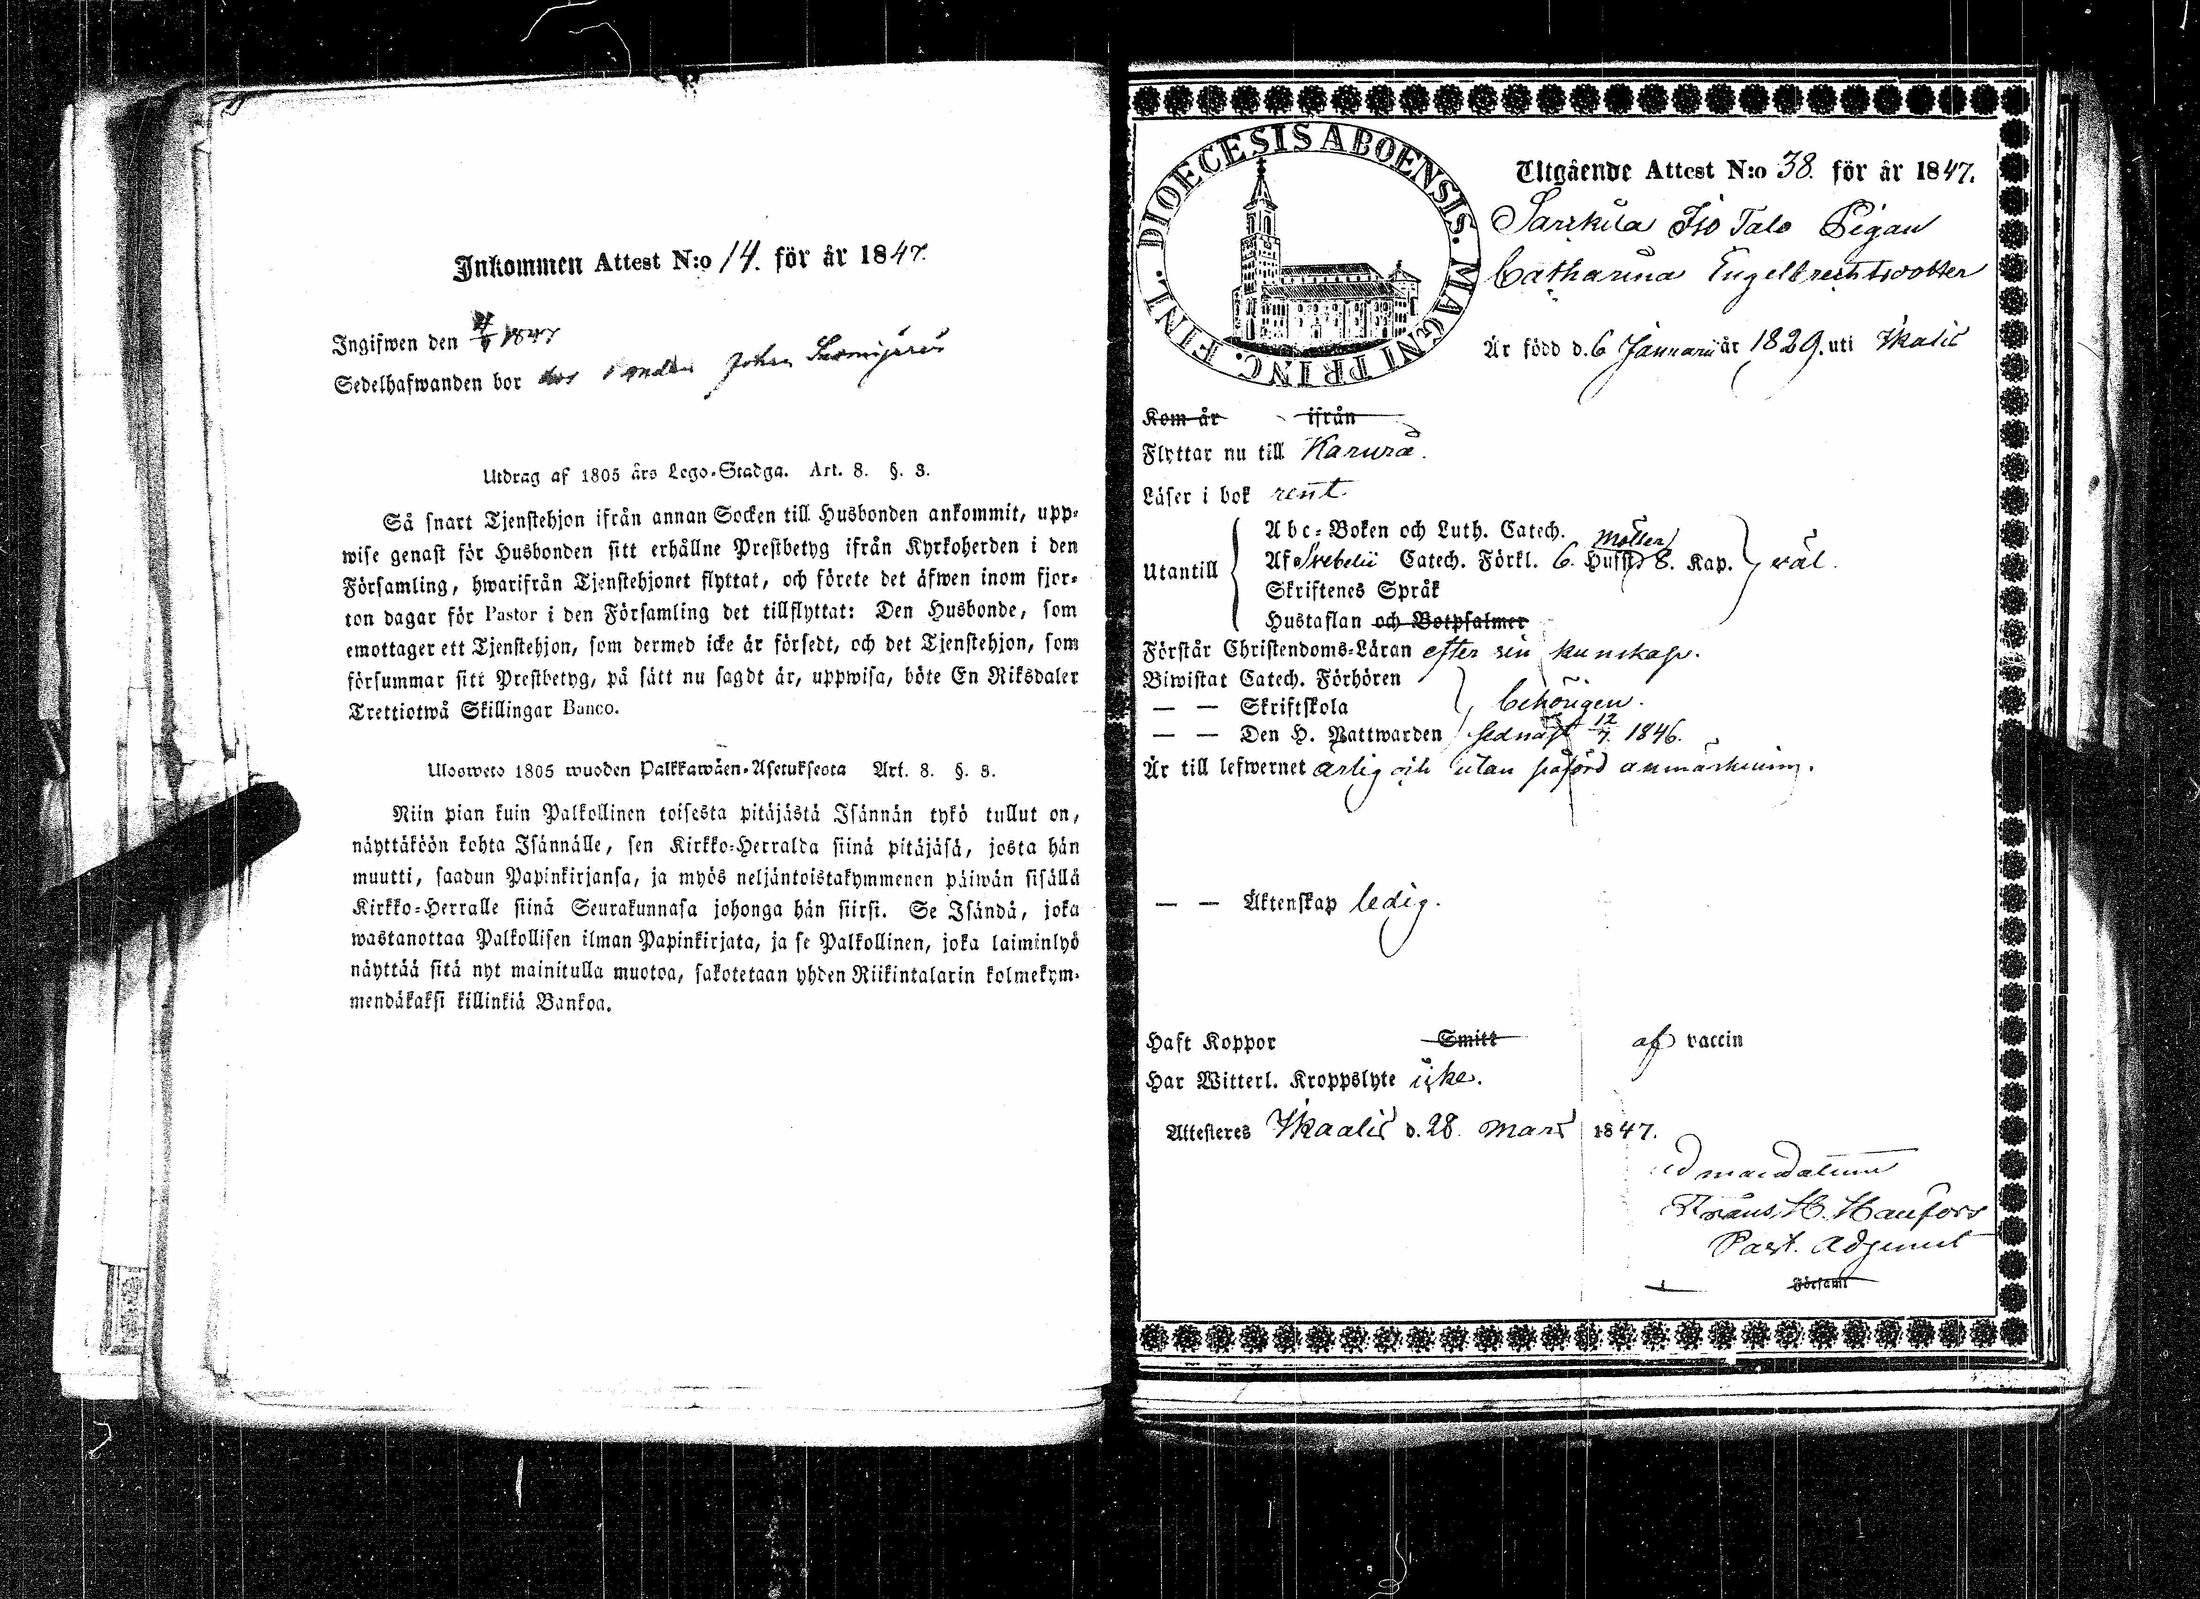 Inkommen Attest N:o 14. för år 1847.
Ingifwen den 1847
Sedelhafwanden bor hos John
Utdrag af 1805 års Lego-Stadga. Art. 8. §. 3.
Så snart Tjenstehjon ifrån annan Socken till Husbonden ankommit, upp-
wise genast för Husbonden sitt erhållne Prestbetyg ifrån Kyrkoherden i den
Församling, hwarifrån Tjenstehjonet flyttat, och förete det äfwen inom fjor-
ton dagar för Pastor i den Församling det tillflyttat: Den Husbonde, som
emottager ett Tjenstehjon, som dermed icke är försedt, och det Tjenstehjon, som
försummar sitt Prestbetyg, på sätt nu sagdt är, uppwisa, böte En Riksdaler
Trettiotwå Skillingar Banco.
Ulosweto 1805 wuoden Palkkawäen-Asetuksesta Art. 8. §. 3.
Niin pian kuin Palkollinen toisesta pitäjästä Isännän tykö tullut on,
näyttäköön kohta Isännälle, sen Kirkko-Herralda siinä pitäjäsä, josta hän
muutti, saadun Papinkirjansa, ja myös neljäntoistakymmenen päiwän sisällä
Kirkko-Herralle siinä Seurakunnasa johonga hän siirsi. Se Isändä, joka
wastanottaa Palkollisen ilman Papinkirjata, ja se Palkollinen, joka laiminlyö
näyttää sitä nyt mainitulla muotoa, sakotetaan yhden Riikintalarin kolmekym-
mendäkaksi killinkiä Bankoa.
DIOECESIS ABOENSIS. MAGNI PRINC. FINL.
Utgående Attest N:o 38. för år 1847.
Sarkila Iso Talo Pigan
Catharina Engelbrechtsdotter
Är född d. 6 Januari år 1829. uti Ikalis
Kom år ifrån
Flyttar nu till Karura.
Läser i bok rent
Abc-Boken och Luth. Catech.
Af Svebelii Catech. Förkl. 6. Hufst 8. Kap.
Utantill väl.
Skriftenes Språk
Hustaflan och Botpsalmer
Förstår Christendoms-Läran efter sin kunskap.
Biwistat Catech. Förhören
— — Skriftskola behörigen.
— — Den H. Nattwarden sednast 12/7 1846.
Är till lefwernet ärlig och utan införd anmärkning.
— — Äktenskap ledig.
Haft Koppor Smitt af vaccin
Har Witterl. Kroppslyte icke.
Attesteras Ikaalis d. 28. mars 1847.
ad mandatum
Frans H. Hanfors
Past. Adjunct
i Församl